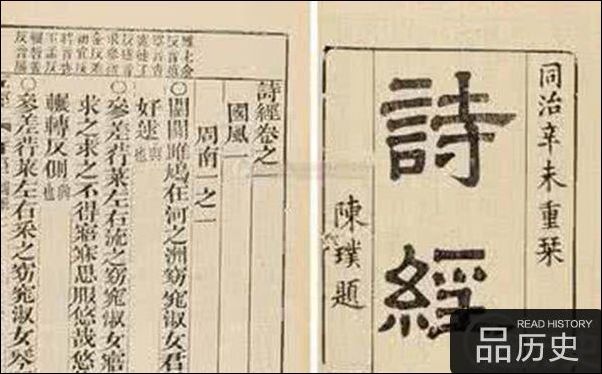 同治辛未重栞
詩經
陳璞題
詩經卷之一
國風一
周南一之一
〇關關雎鳩在河之洲窈窕淑女君
好逑興也
〇參差荇菜左右流之窈窕淑女寤
求之求之不得寤寐思服悠哉悠
輾轉反側興也
〇參差荇菜左右采之窈窕淑女琴
READ HISTORY
品历史